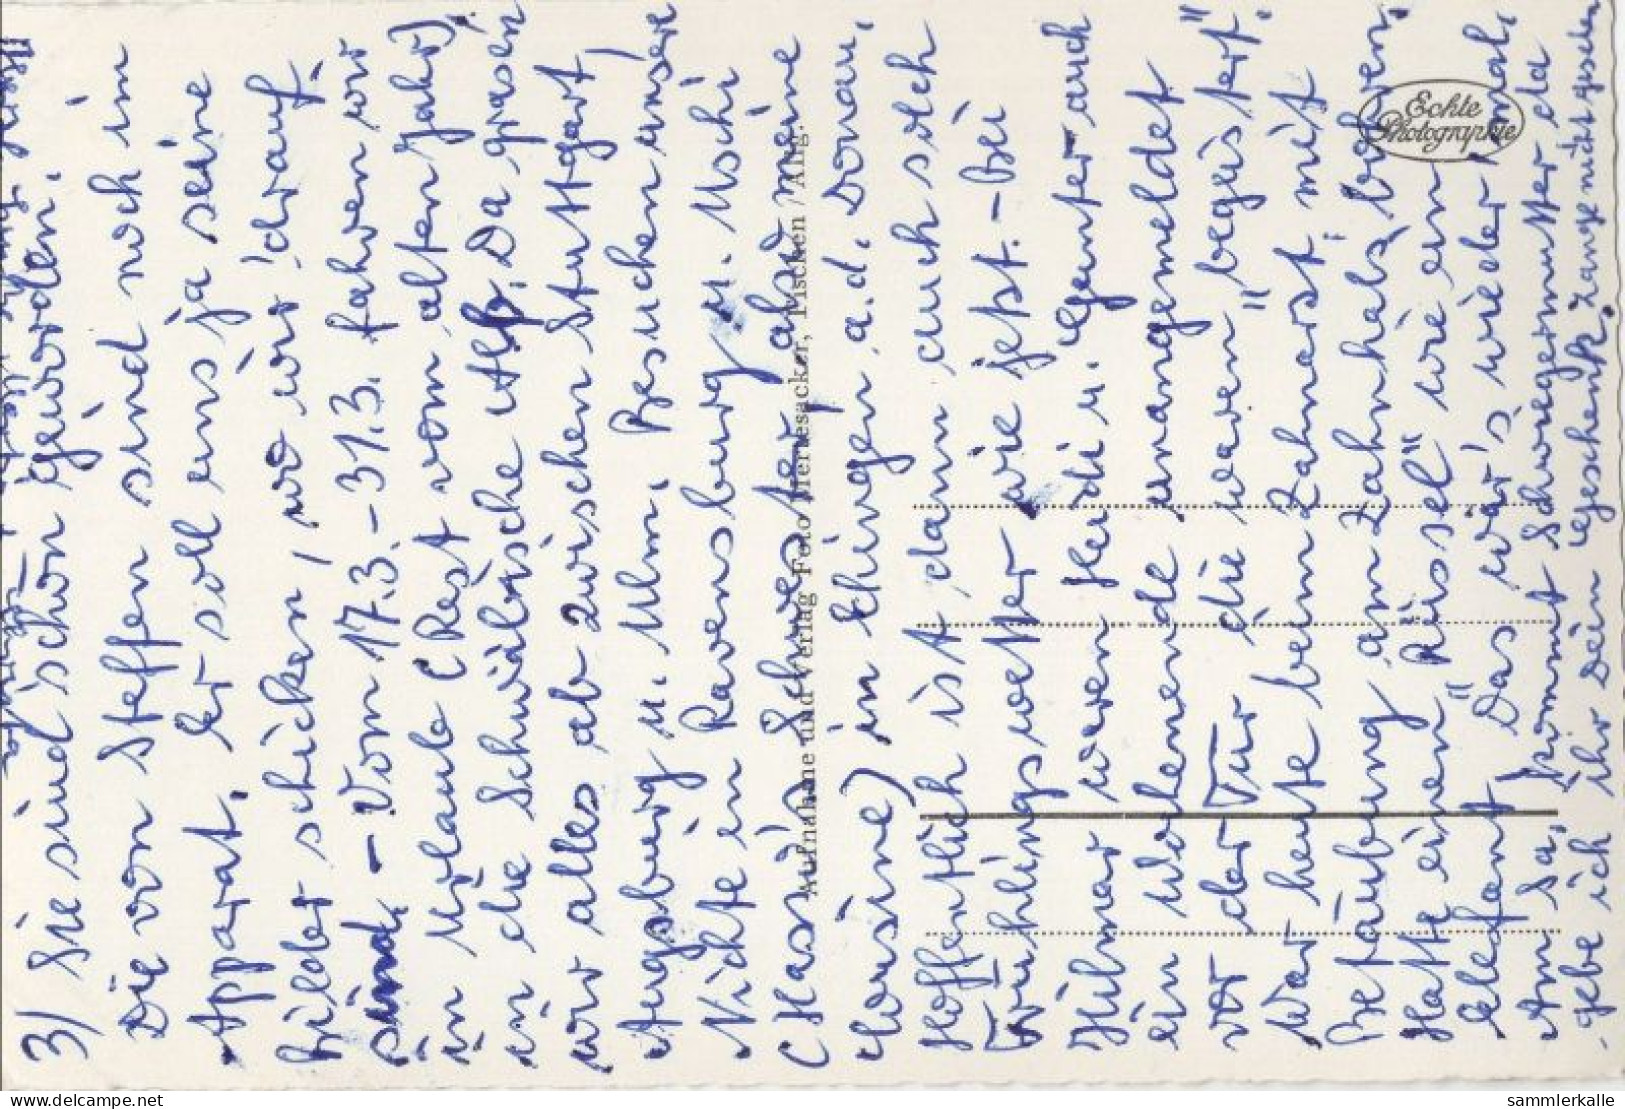 3/ Sie sind schön geworden.
Die von Steffen sind noch im
Apparat. Er soll uns ja seine
Bilder schicken, wo wir 'drauf
sind. - Vom 17.3. - 31.3. fahren wir
in Urlaub (Rest vom alten Jahr)
in die Schwäbische Alb. Da grasen
wir alles ab zwischen Stuttgart,
Augsburg u. Ulm. Besuchen unsere
Nichte in Ravensburg u. Uschi
(Hasis Schwester, also meine
Cousine) in Ehingen a.d. Donau.
Hoffentlich ist dann auch solch
Frühlingswetter wie jetzt. - Bei
Hilmar waren Heidi u. Günter auch
ein Wochenende unangemeldet
vor der Tür. Die waren "begeistert".
War heute beim Zahnarzt, mit
Betäubung am Zahnhals bohren.
Hatte einen "Rüssel" wie ein
Elefant. Das wär's wieder mal.
Am Sa. kommt Schwiegermutter, da
gebe ich ihr Dein Geschenk. Lange nicht gesehen
Aufnahme und Verlag Foto Herresacker, Fischen / Allg.
Echte
Photographie
sammlerkalle